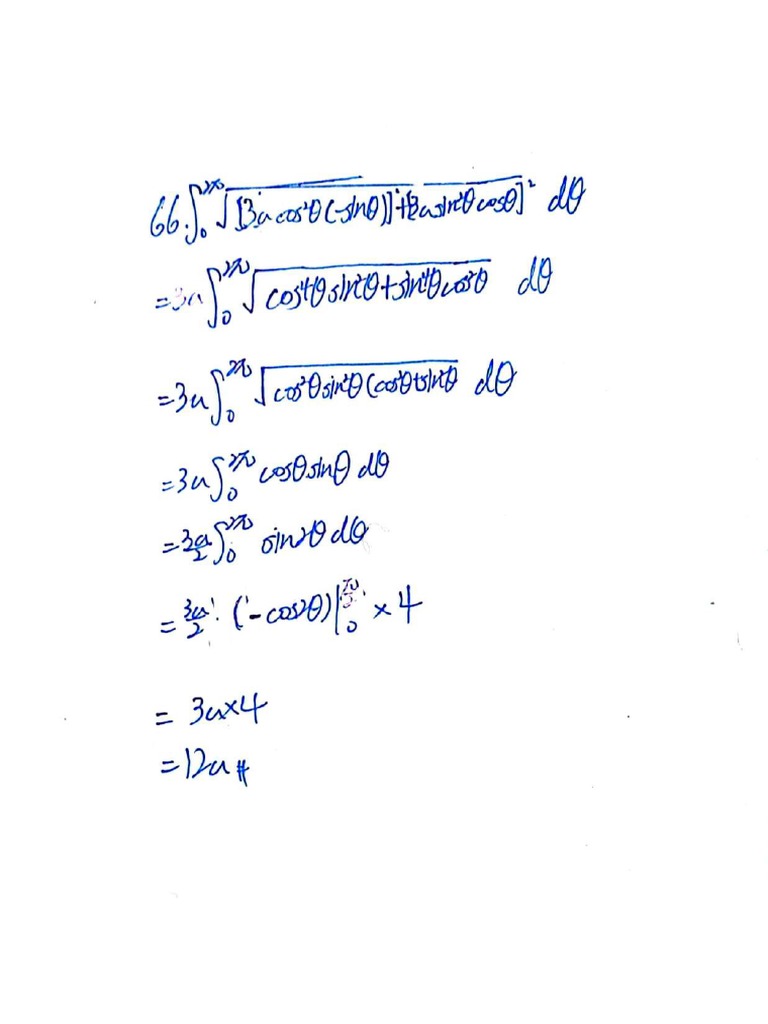 66. ∫₀^2π √[3a cos²θ(-sinθ)]²+[3a sin²θ cosθ]² dθ
=3a ∫₀^2π √cos⁴θ sin²θ+sin⁴θ cos²θ dθ
=3a ∫₀^2π √cos²θ sin²θ (cos²θ+sin²θ dθ
=3a ∫₀^2π cosθ sinθ dθ
=3a/2 ∫₀^2π sin2θ dθ
=3a/2 · (-cos2θ)|₀^π/2 × 4
= 3a×4
=12a #